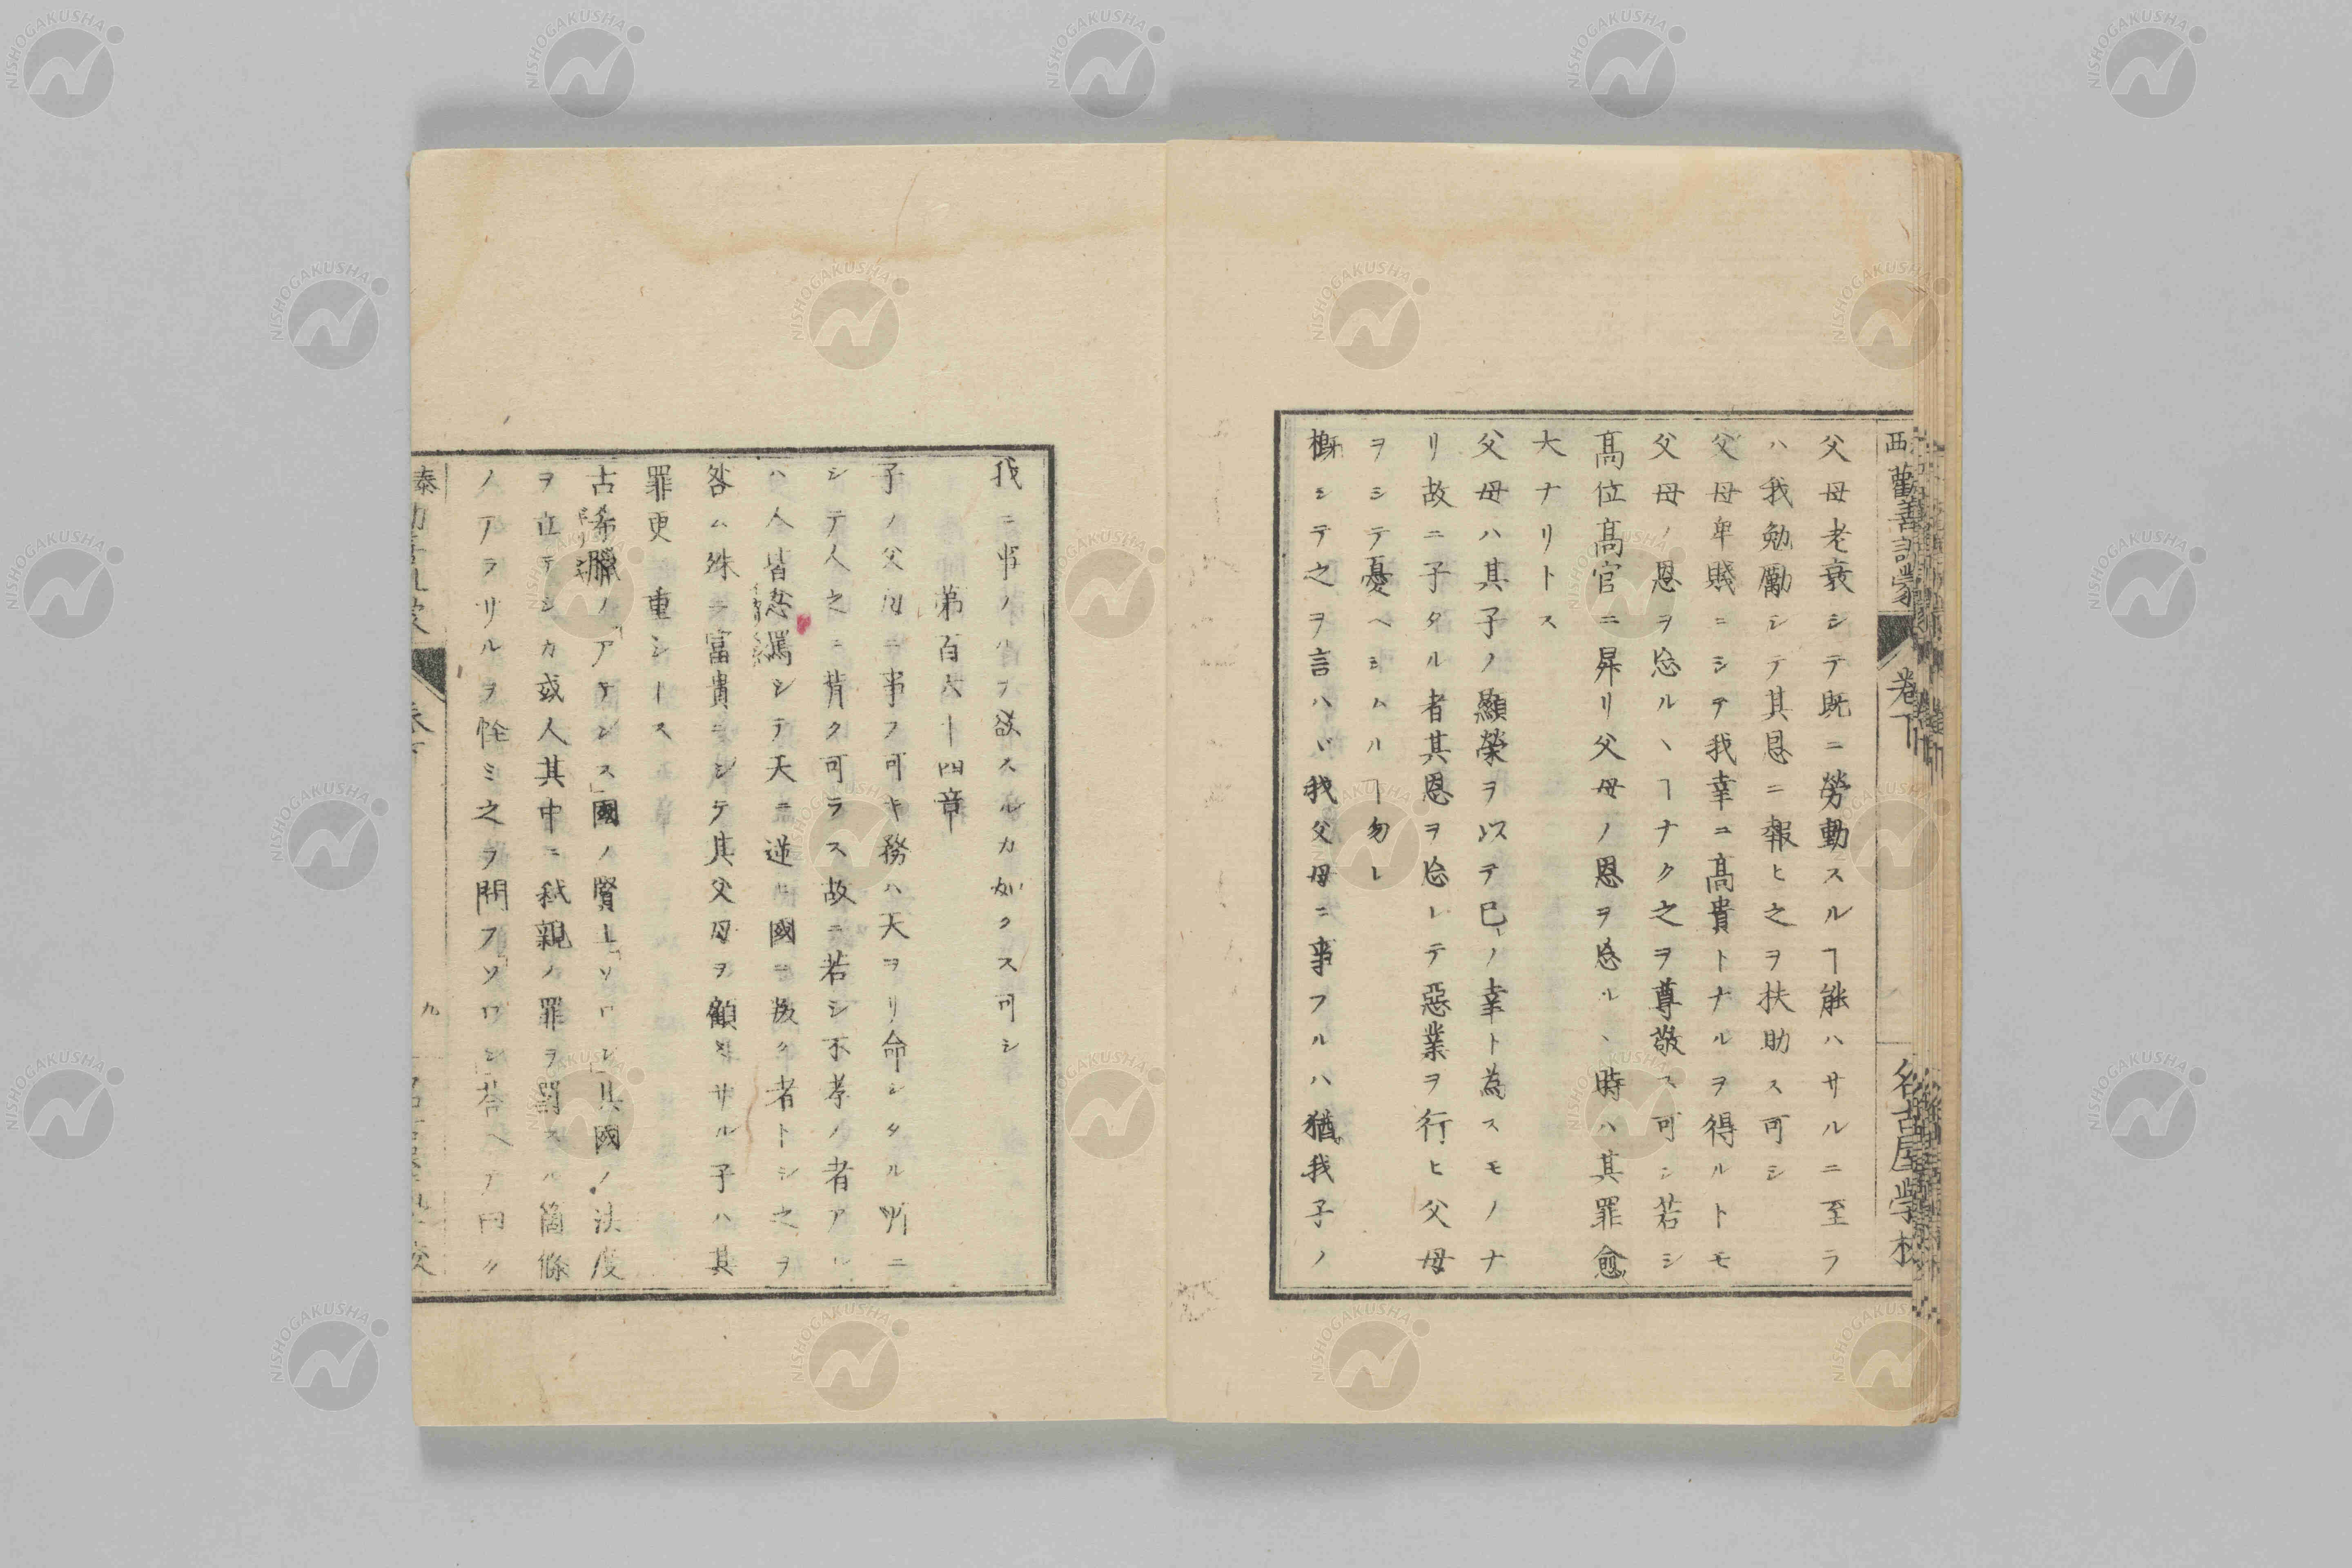 西 勸善訓蒙 卷下 名古屋學校
父母老衰シテ既ニ勞動スルヿ能ハサルニ至ラ
ハ我勉勵シテ其恩ニ報ヒ之ヲ扶助ス可シ
父母卑賤ニシテ我幸ニ高貴トナルヲ得ルトモ
父母ノ恩ヲ忘ルヽヿナク之ヲ尊敬ス可シ若シ
高位高官ニ昇リ父母ノ恩ヲ忘ルヽ時ハ其罪愈
大ナリトス
父母ハ其子ノ顯榮ヲ以テ已ノ幸ト為スモノナ
リ故ニ子タル者其恩ヲ忘レテ惡業ヲ行ヒ父母
ヲシテ憂ヘシムルヿ勿レ
概シテ之ヲ言ハヾ我父母ニ事フルハ猶我子ノ
我ニ事ノルヲ欲スルカ如クス可シ
第百六十四章
子ノ父母ニ事フ可キ務ハ天ヨリ命シタル所ニ
シテ人之ニ背ク可ラス故ニ若シ不孝ノ者アル
ハ人皆忿罵シテ天ニ逆ヒ國ニ叛ク者トシ之ヲ
咎ム殊ニ富貴ニシテ其父母ヲ顧ミサル子ハ其
罪更ニ重シトス
古希臘ノアテンス國ノ賢士ソロン其國ノ法度
ヲ立テシカ或人其中ニ弑親ノ罪ヲ罰スル箇條
ノアラサルヲ怪ミ之ヲ問フソロン荅ヘテ曰ク
泰 九
NISHOGAKUSHA